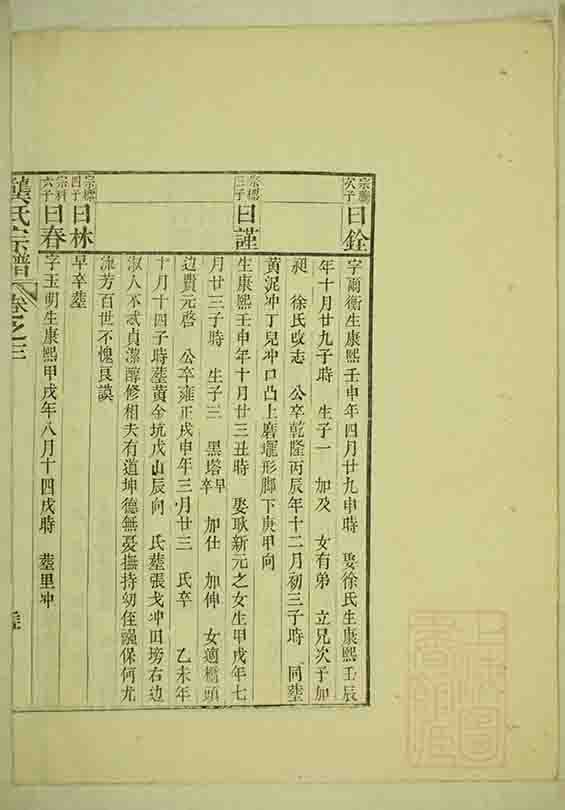 宗
次子 曰銓
字爾衡生康熙壬申年四月廿九申時 娶徐氏生康熙壬辰
年十月廿九子時 生子一 加及 女有弟 立兄次子加
昶 徐氏改志 公卒乾隆丙辰年十二月初三子時 同塟
黃泥冲丁兒冲口凸上磨壠形脚下庚甲向
宗
三子 曰謹
生康熙壬申年十月廿三丑時 娶耿新元之女生甲戌年七
月廿三子時 生子三 黑塔早卒 加仕 加伸 女適櫃頭
边賈元啓 公卒雍正戊申年三月廿三 氏卒 乙未年
十月十四子時塟黃金坑戊山辰向 氏塟張戈冲田塝右边
淑人不忒貞潔醇修相夫有道坤德無憂撫持幼侄襁保何尤
流芳百世不愧良謨
宗
四子 曰林
早卒塟
宗科
六子 曰春
字玉明生康熙甲戌年八月十四戌時 塟里冲
龔氏宗譜 卷之三